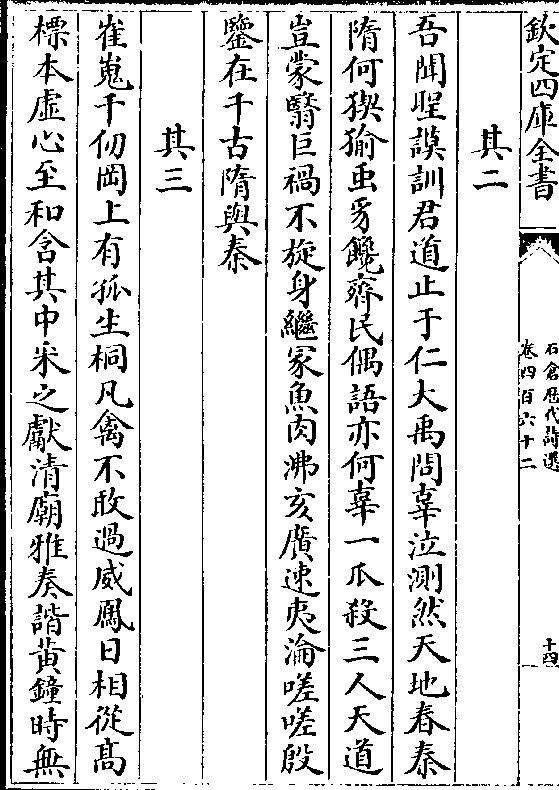 欽定四庫全書
石倉歴代詩選
卷四百六十二
十四
其二
吾聞聖謨訓君道止于仁大禹問辜泣測然天地春秦
隋何猰㺄虫豸饞齊民偶語亦何辜一瓜殺三人天道
豈蒙翳巨禍不旋身繼冢魚肉沸亥廣速夷淪嗟嗟殷
鑒在千古隋與秦
其三
崔嵬千仞岡上有孤生桐凡禽不敢過威鳳日相從髙
標本虛心至和含其中采之獻清廟雅奏諧黃鐘時無